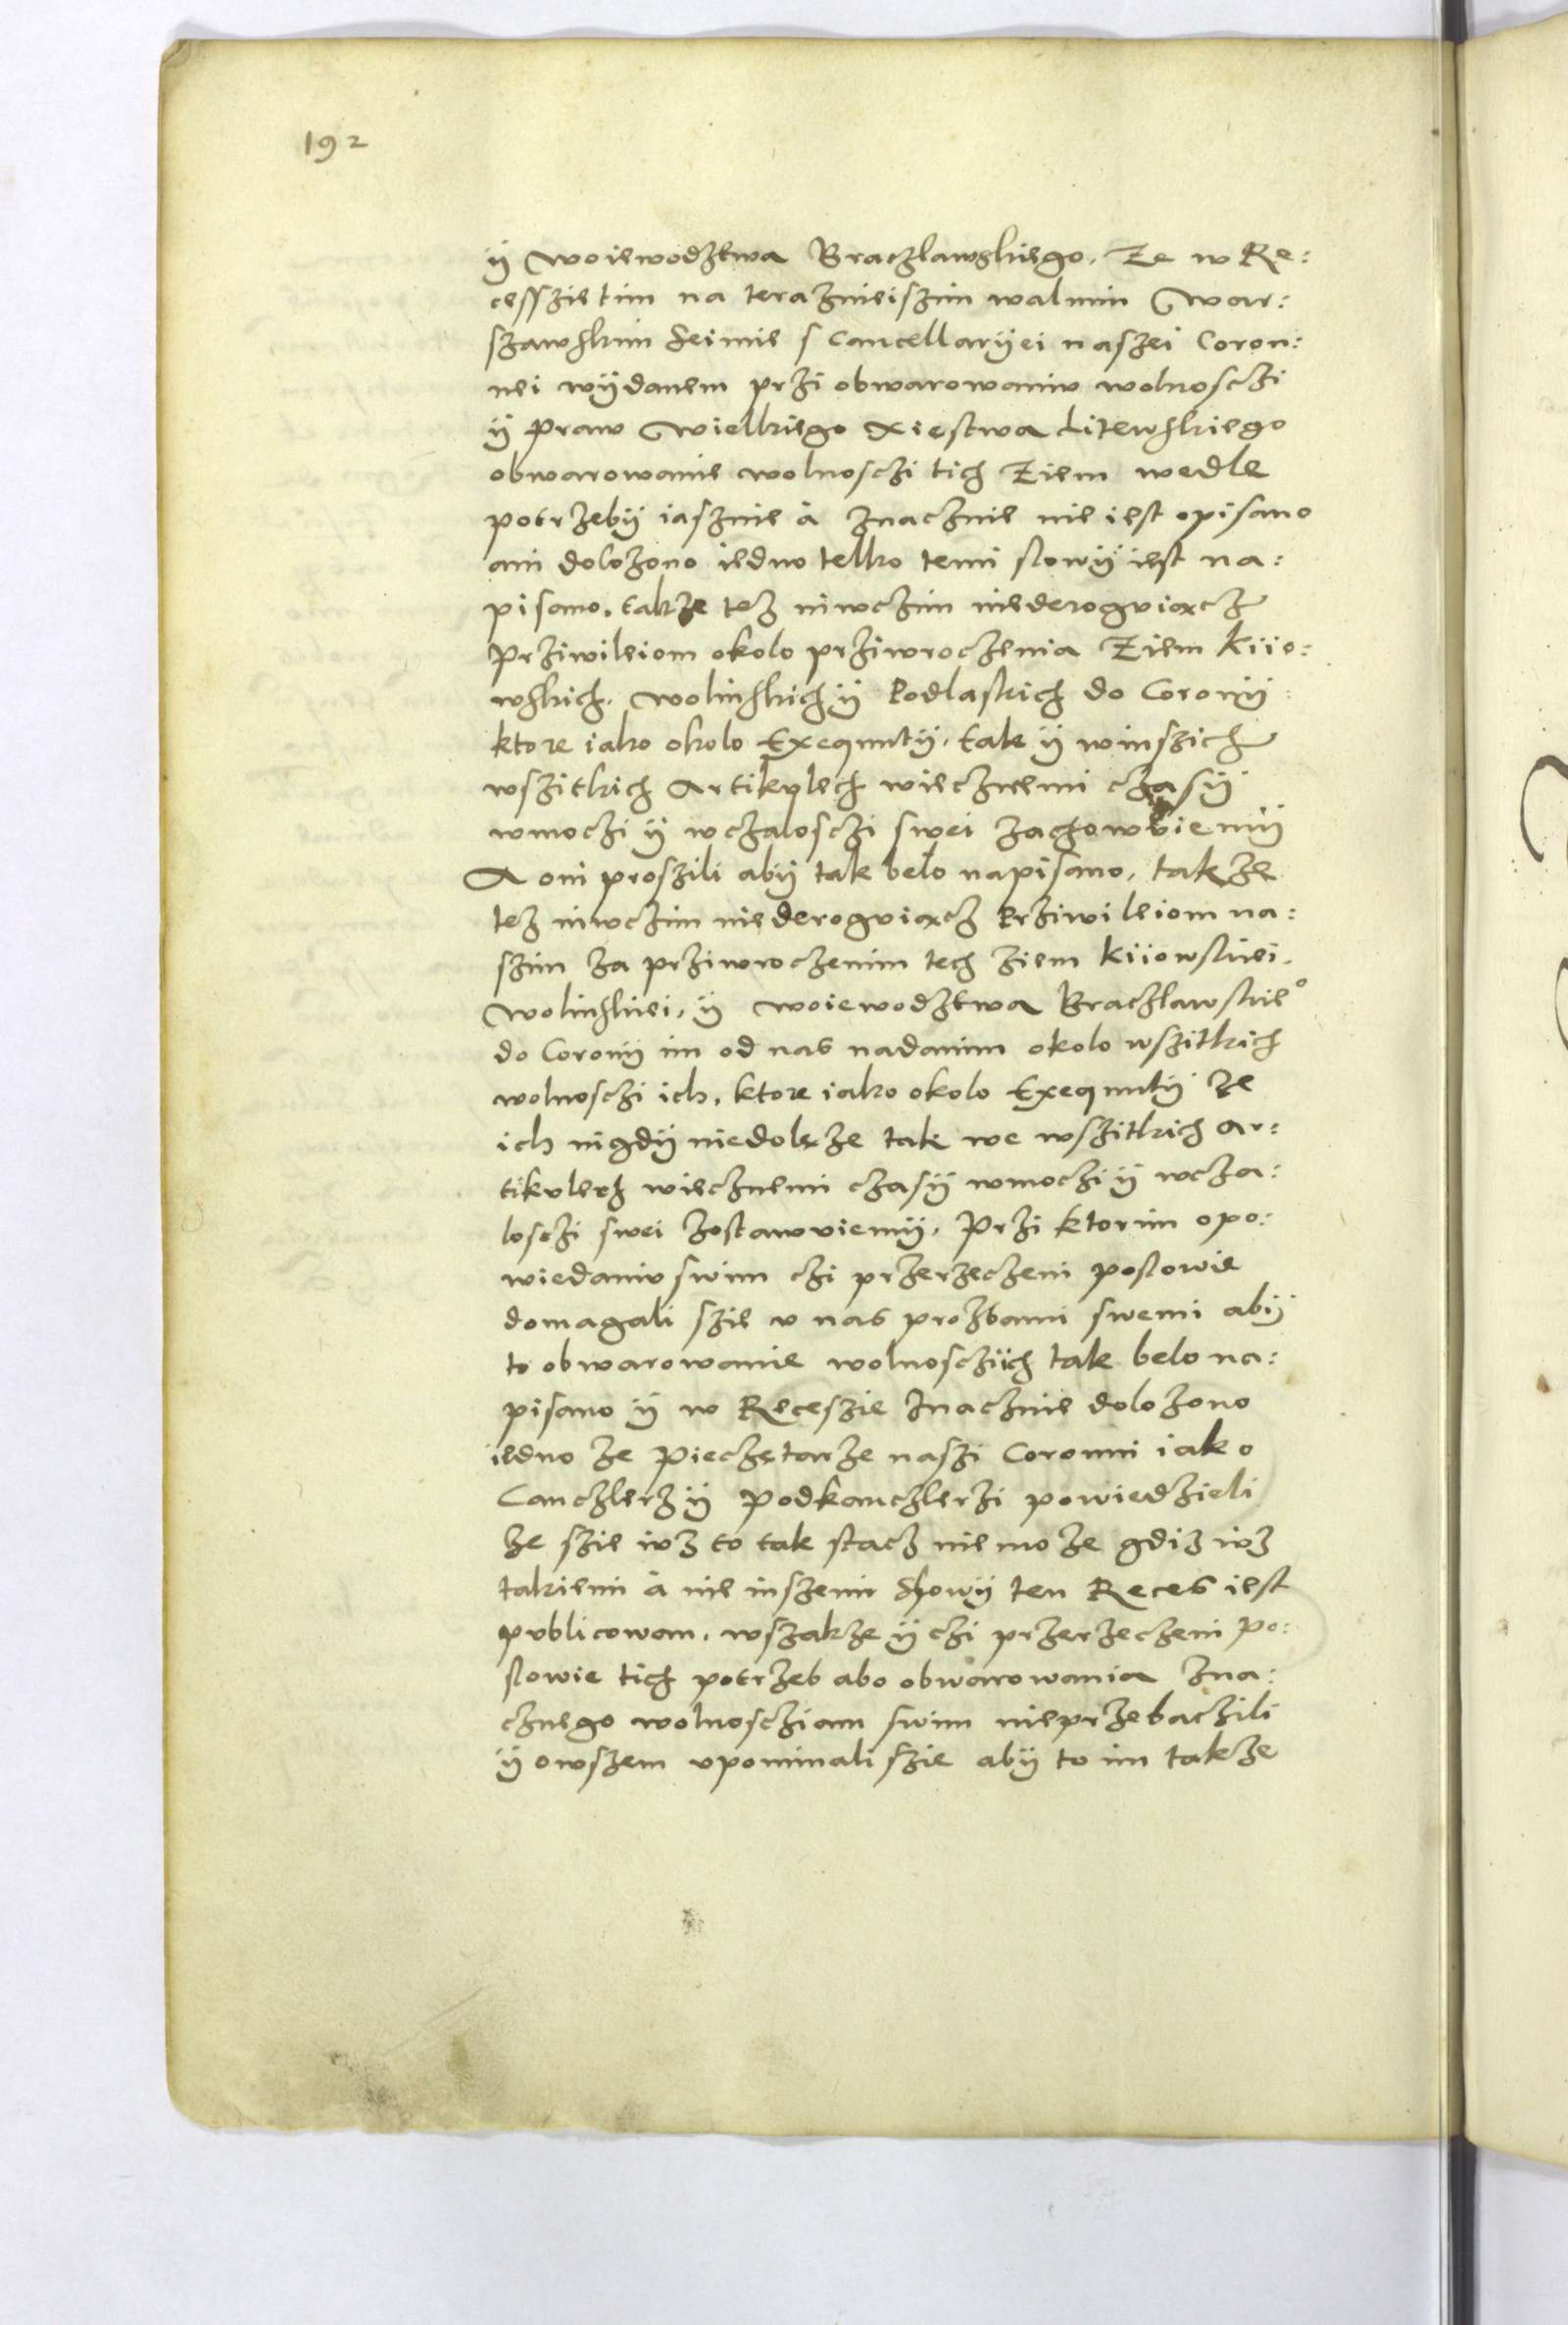 192
ÿ woiewodztwa Braczlawskiego. Ze w Re:
cesszie tim na teraznieiszim walnim War:
szawskim Seimie s Cancellarÿei naszei Coron:
nei wÿdanem przi obwarowaniv wolnosczi
ÿ praw Wielkiego Xiestwa Litewskiego
obwarowanie wolnosczi tich Ziem wedle
potrzebÿ iasznie à znacznie nie iest opisano
ani dolozono iedno telko temi slowÿ iest na:
pisano, takze tez niwczim niederogviacz
Prziwileiom okolo prziwroczenia Ziem Kiio:
wskich, wolinskich ÿ Podlaskich do Coronÿ
ktore iako okolo Exequutÿ, tak ÿ winszich
wszitkich Artikvlech wiecznemi czasÿ
wmoczi ÿ wczalosczi swei zachowviemÿ
A oni proszili abÿ tak belo napisano, takze
tez niwczim niederogviacz Prziwileiom na:
szim za prziwroczenim tech ziem Kiiowskiei,
wolinskiei, ÿ woiewodztwa Braczlawskie°
do Coronÿ im od nas nadanim okolo wszitkich
wolnosczi ich, ktore iako okolo Exequutÿ ze
ich nigdÿ niedolęze tak we wszitkich Ar:
tikvlech wiecznemi czasÿ wmoczi ÿ wcza:
losczi swei zostawviemÿ, Przi ktorim opo:
wiedaniv swim czi przerzeczeni poslowie
domagali szie v nas prozbami swemi abÿ
to obwarowanie wolnosczi ich tak belo na:
pisano ÿ w Receszie znacznie dolozono
iedno ze Pieczętarze naszi Coronni iako
Canczlerz ÿ Podkanczlerzi powiedzieli
ze szie ivz to tak stacz nie moze gdiz ivz
takiemi à nie inszemi slowÿ ten Reces iest
pvblicowan, wszakze ÿ czi przerzeczeni po:
slowie tich potrzeb abo obwarowania zna:
cznego wolnoscziam swim nieprzebaczili
ÿ owszem vpominali szie abÿ to im takze